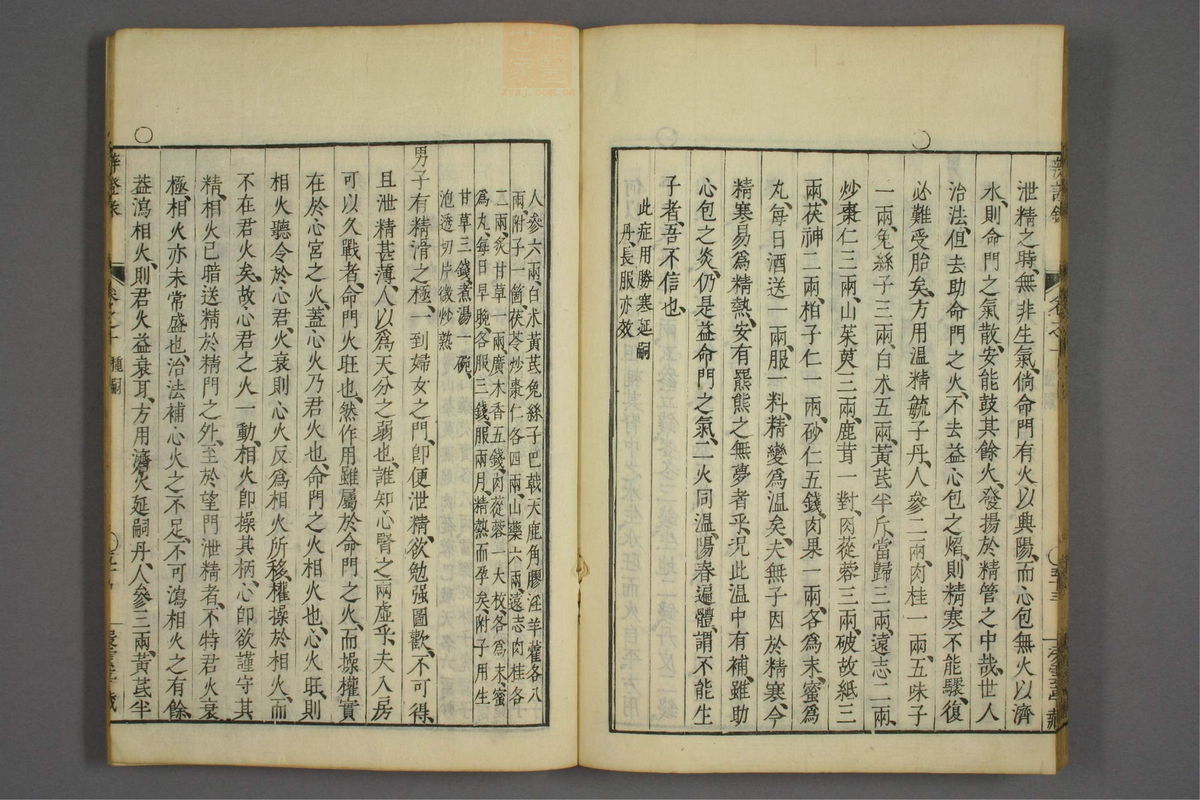 泄精之時、無非生氣、倘命門有火以典陽、而心包無火以濟
水、則命門之氣散、安能鼓其餘火、發揚於精管之中哉、世人
治法、但去助命門之火、不去益心包之熖、則精寒不能驟復
必難受胎矣、方用溫精毓子丹、人參二兩、肉桂一兩、五味子
一兩、兔絲子三兩、白朮五兩、黃芪半斤、當歸三兩、遠志二兩、
炒棗仁三兩、山茱萸三兩、鹿茸一對、肉蓯蓉三兩、破故紙三
兩、茯神二兩、柏子仁一兩、砂仁五錢、肉果一兩、各爲末、蜜爲
丸、每日酒送一兩、服一料、精變爲溫矣、夫無子因於精寒、今
精寒易爲精熱、安有羆熊之無夢者乎、况此溫中有補、雖助
心包之炎、仍是益命門之氣、二火同溫、陽春遍體、謂不能生
子者、吾不信也、
此症用勝寒延嗣
丹、長服亦效
人參六兩、白朮黃芪兔絲子巴戟天鹿角膠淫羊藿各八
兩、附子一箇、茯苓炒棗仁各四兩、山藥六兩、遠志肉桂各
二兩、炙甘草一兩、廣木香五錢、肉蓯蓉一大枚、各爲末、蜜
爲丸、每日早晚各服三錢、服兩月、精熱而孕矣、附子用生
甘草三錢、煮湯一碗、
泡透切片微炒熟
男子有精滑之極、一到婦女之門、卽便泄精、欲勉强圖歡、不可得、
且泄精甚薄、人以爲天分之弱也、誰知心腎之兩虛乎、夫入房
可以久戰者、命門火旺也、然作用雖屬於命門之火、而操權實
在於心宮之火、蓋心火乃君火也、命門之火相火也、心火旺、則
相火聽令於心、君火衰則心火反爲相火所移、權操於相火、而
不在君火矣、故心君之火一動、相火卽操其柄、心卽欲謹守其
精、相火已暗送精於精門之外、至於望門泄精者、不特君火衰
極、相火亦未常盛也、治法補心火之不足、不可瀉相火之有餘、
蓋瀉相火、則君火益衰耳、方用濟火延嗣丹、人參三兩、黃芪半
種嗣